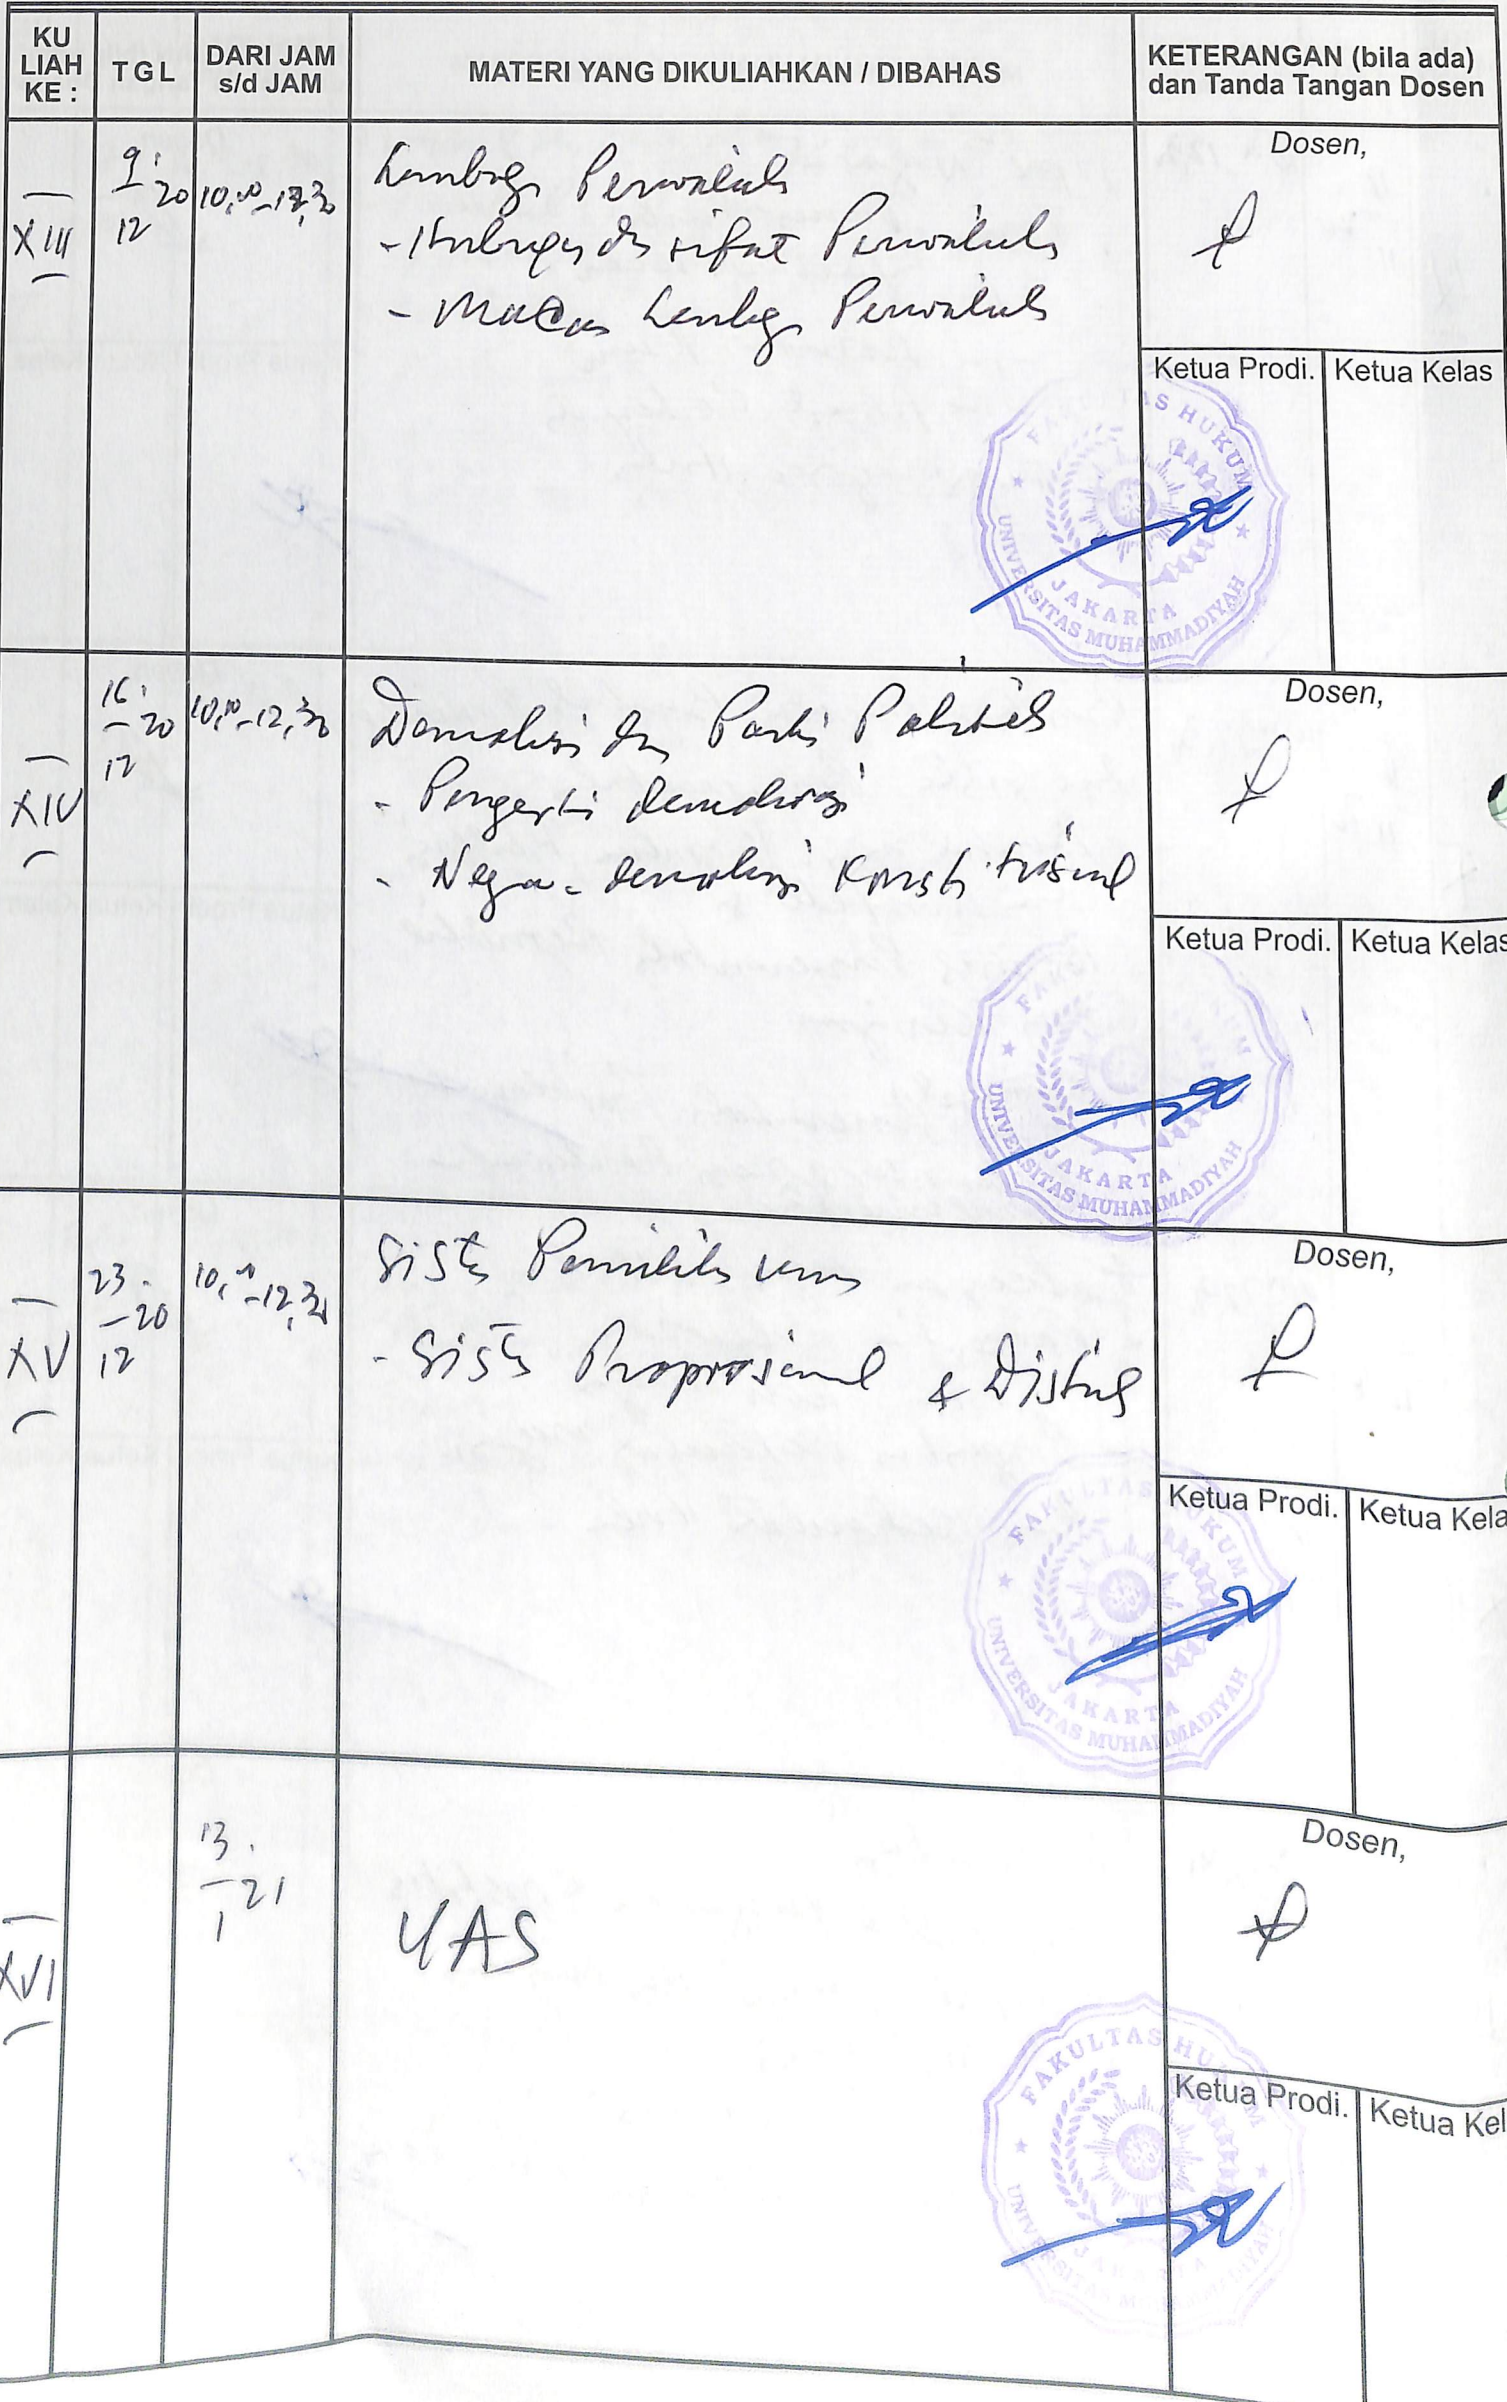 KU
LIAH
KE :
T G L
DARI JAM
s/d JAM
MATERI YANG DIKULIAHKAN / DIBAHAS
KETERANGAN (bila ada)
dan Tanda Tangan Dosen
XIII
9
12
20
10.00-12.30
Lembaga Perwakilan
- Hubungan dan sifat Perwakilan
- Macam Lembaga Perwakilan
Dosen,
Ketua Prodi. Ketua Kelas
FAKULTAS HUKUM
UNIVERSITAS MUHAMMADIYAH
JAKARTA
XIV
16
12
20
10.10-12.30
Demokrasi dan Partai Politik
- Pengertian demokrasi
- Negara demokrasi Konstitusional
Dosen,
Ketua Prodi. Ketua Kelas
UNIVERSITAS MUHAMMADIYAH
JAKARTA
XV
23
12
20
10.00-12.30
Sistem Pemilihan umum
- Sistem Proporsional & Distrik
Dosen,
Ketua Prodi. Ketua Kela
FAKULTAS HUKUM
UNIVERSITAS MUHAMMADIYAH
JAKARTA
XVI
13
1
21
UAS
Dosen,
Ketua Prodi. Ketua Kel
FAKULTAS HUKUM